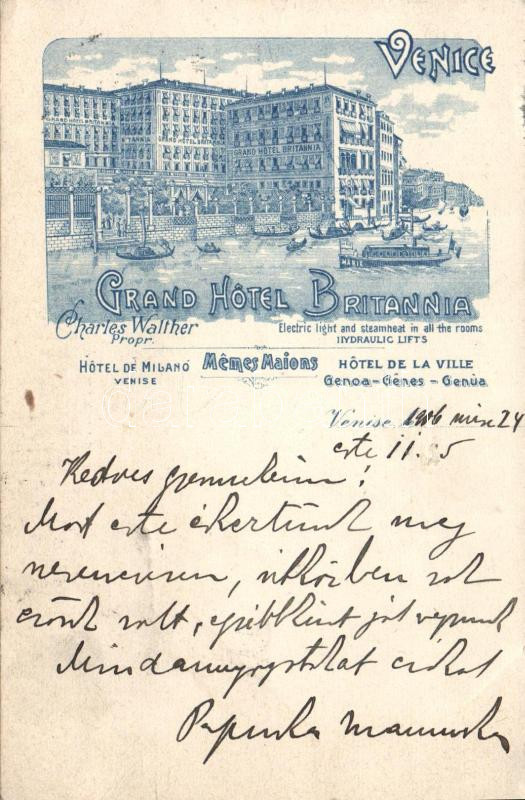 VENICE
GRAND HOTEL BRITANNIA
GRAND HÔTEL BRITANNIA
Charles Walther
Propr.
Electric light and steamheat in all the rooms
HYDRAULIC LIFTS
HÔTEL DE MILANO
VENISE
Mêmes Maions
HÔTEL DE LA VILLE
Genoa - Gênes - Genùa
Venise, 1906 24
este 11. 5
Kedves gyermekeim!
Most este érkertünk meg
szerencsésen, útközben sok
volt, egyébként jól vagyunk
Mindannyiotokat csókol
Papuska Mamuska